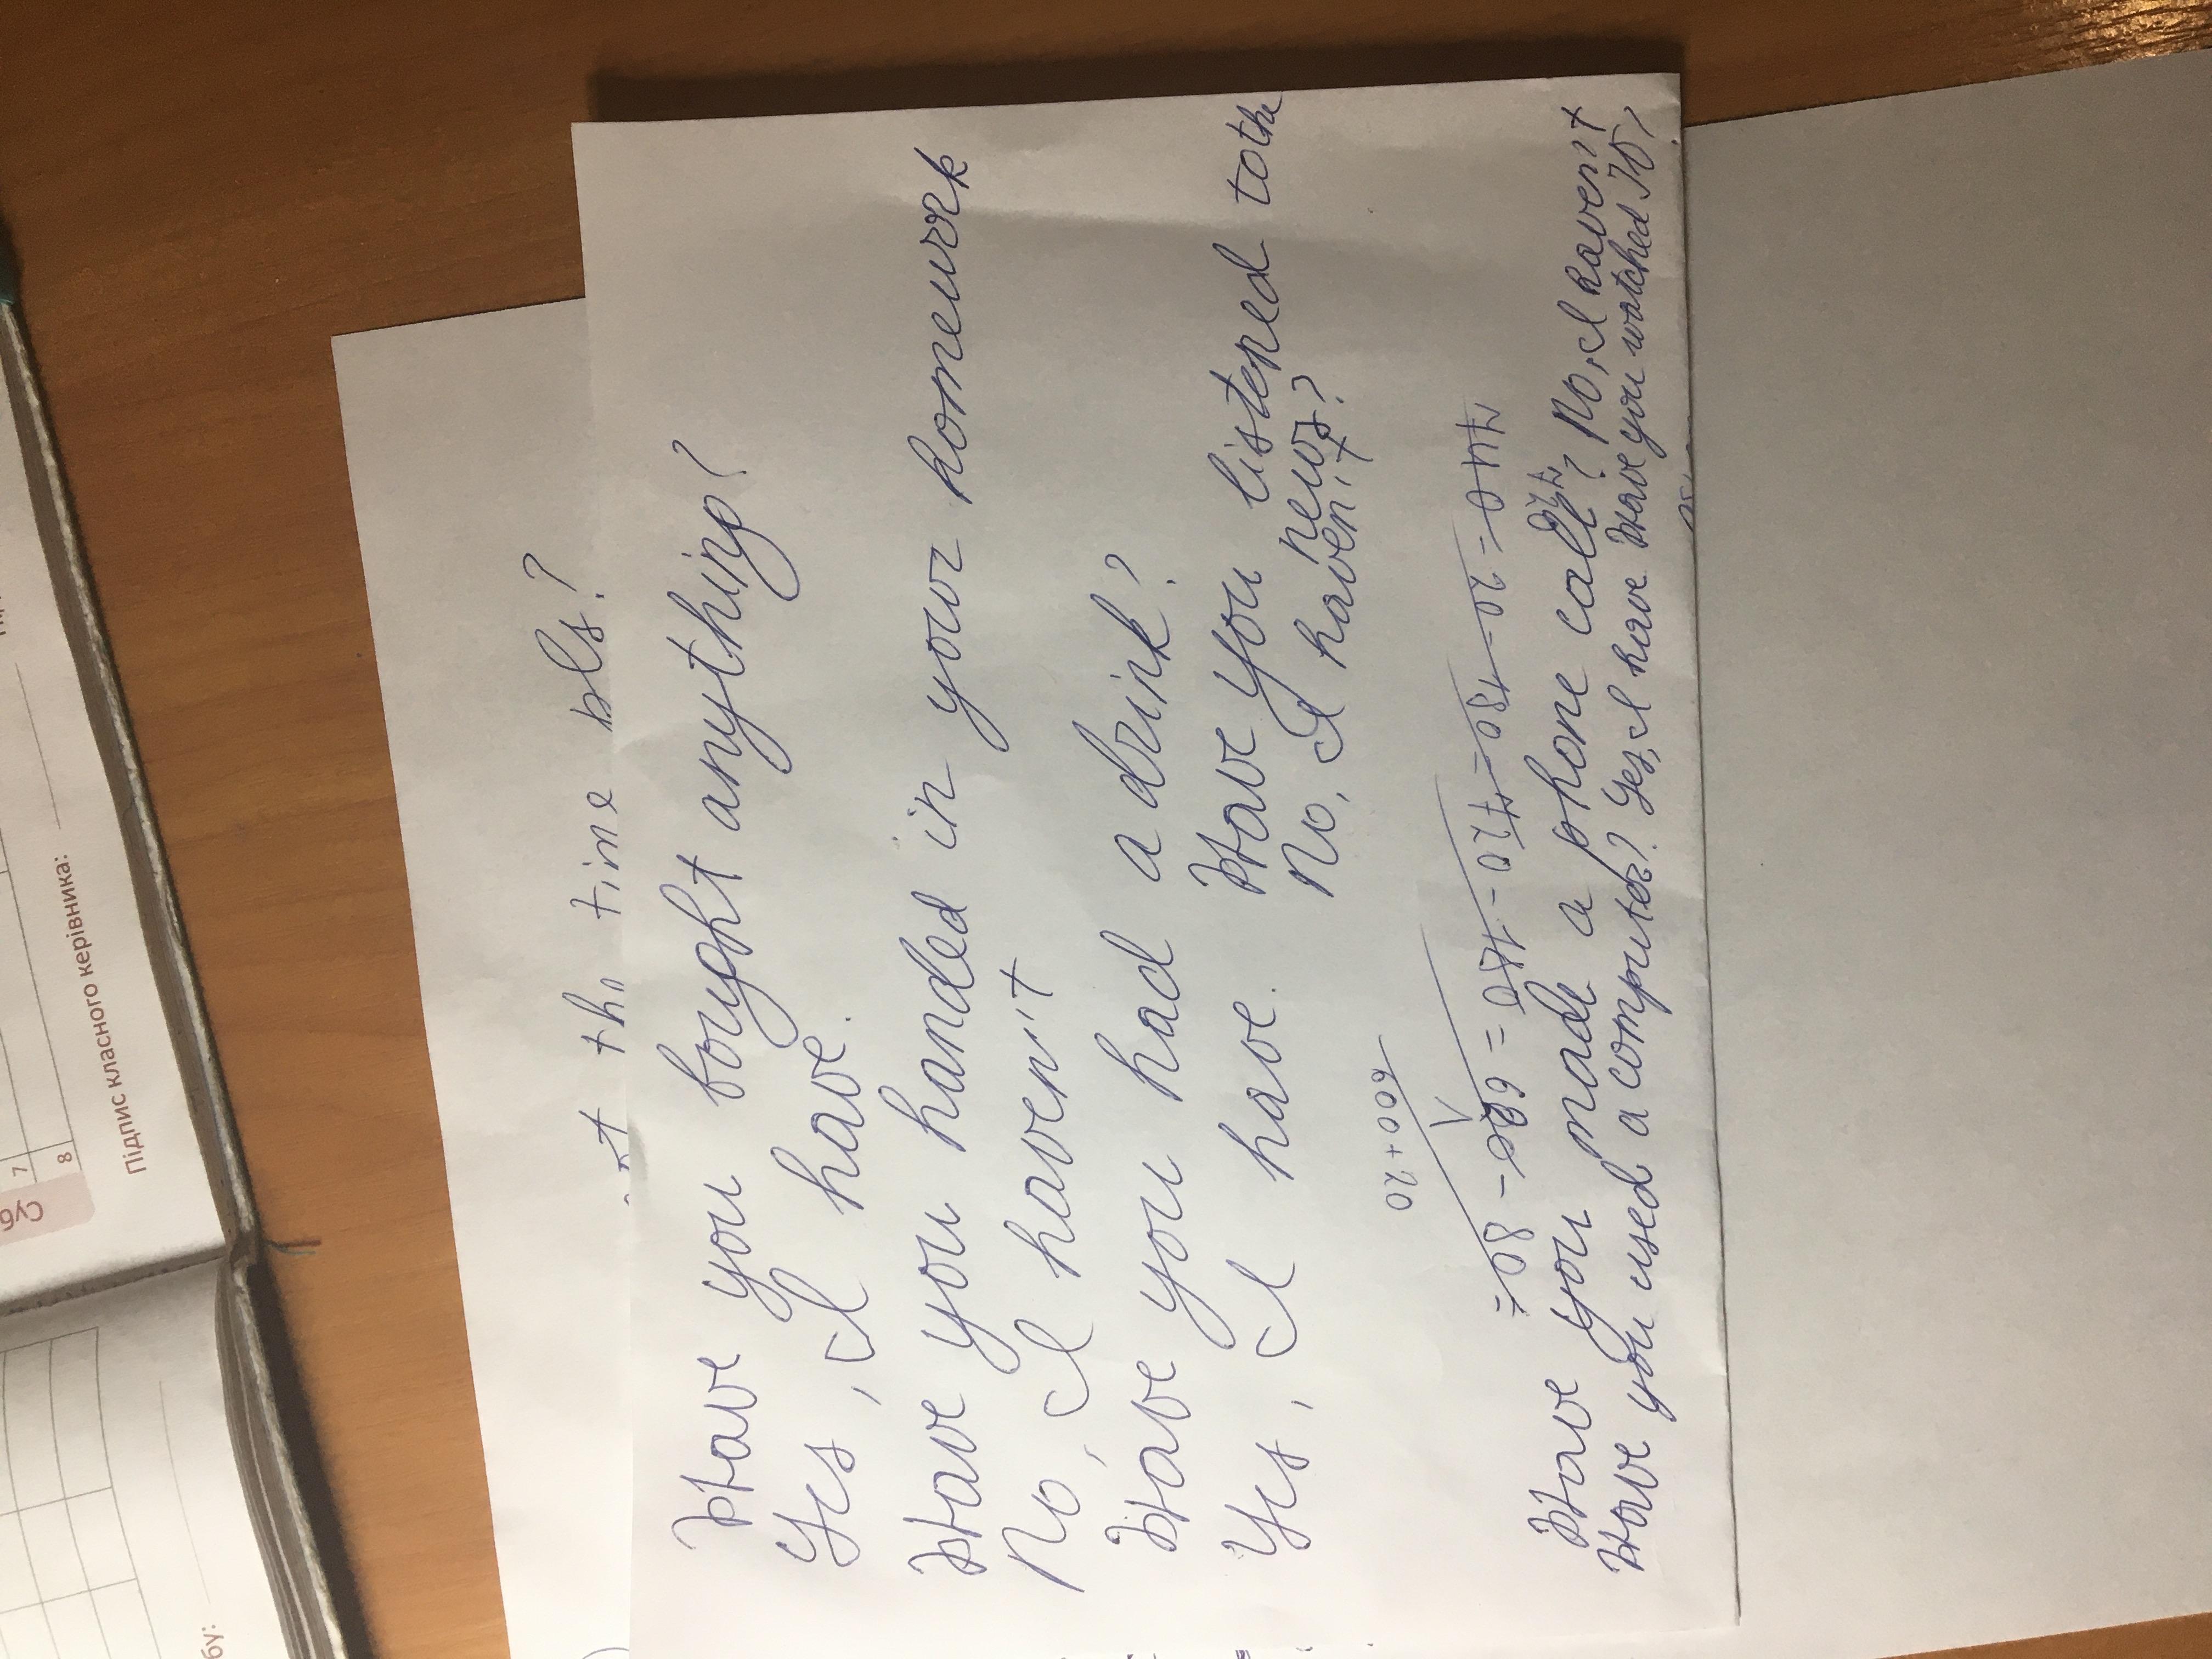 Підпис класного керівника:
7
8
Суб
бу:
the time pls?
Have you bought anything?
Yes, I have.
Have you handed in your homework
No, I haven't
Have you had a drink?
Yes, I have.
Have you listened to the
news?
No, I haven't
600+20
Have you made a phone call? No, I haven't
Have you used a computer? Yes, I have Have you watched